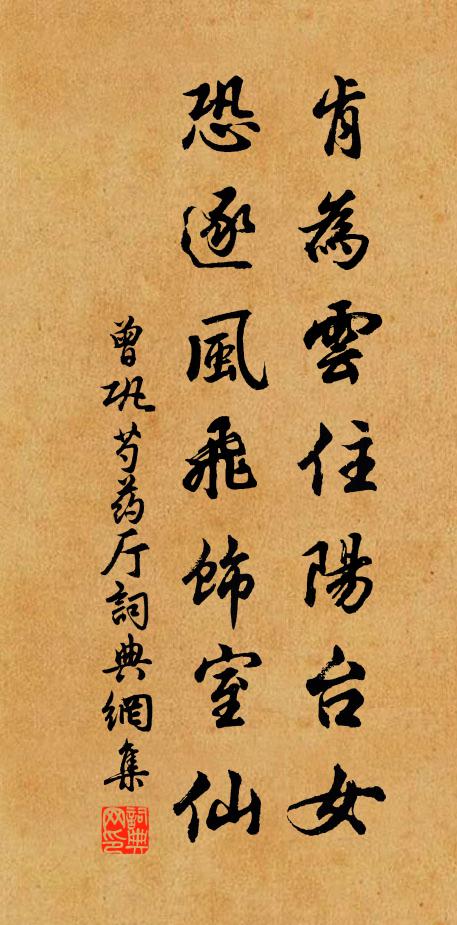 肯為雲住陽台女
恐逐風飛飾室仙
曾巩芍药厅詞典網集
詞典網印